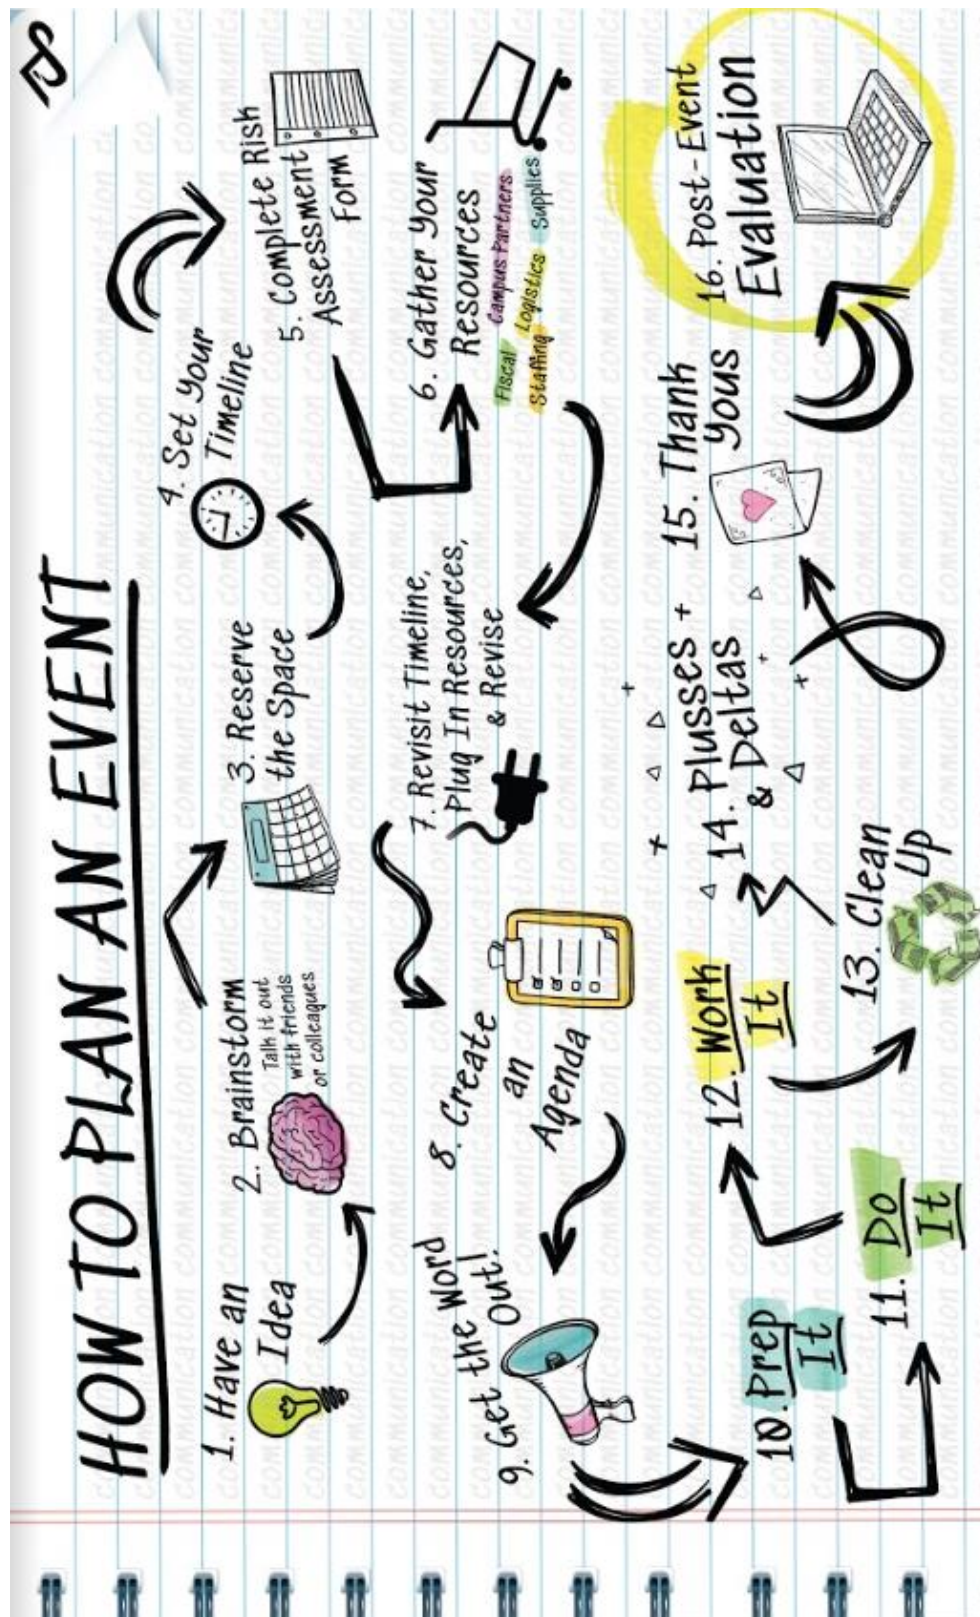 HOW TO PLAN AN EVENT
1. Have an
Idea
2. Brainstorm
Talk it out
with friends
or colleagues
3. Reserve
the Space
4. Set Your
Timeline
5. Complete Risk
Assessment
Form
6. Gather Your
Resources
Fiscal
Campus Partners
Staffing
Logistics
Supplies
7. Revisit Timeline,
Plug In Resources,
& Revise
8. Create
an
Agenda
9. Get the Word
Out!
10. Prep
It
11. Do
It
12. Work
It
13. Clean
Up
14. Plusses +
& Deltas
15. Thank
Yous
16. Post-Event
Evaluation